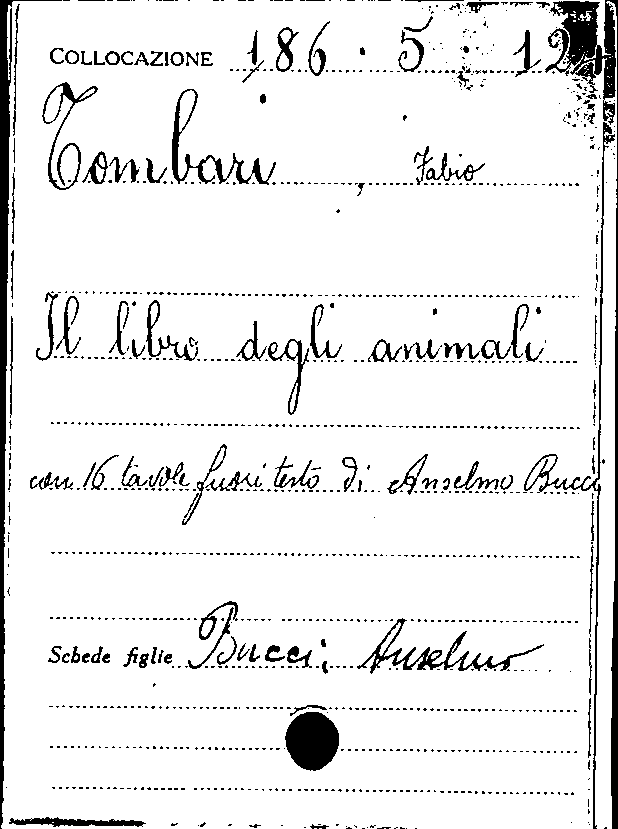 COLLOCAZIONE 186 · 5 · 12
Tombari, Fabio
Il libro degli animali
con 16 tavole fuori testo di Anselmo Bucci
Schede figlie Bucci, Anselmo